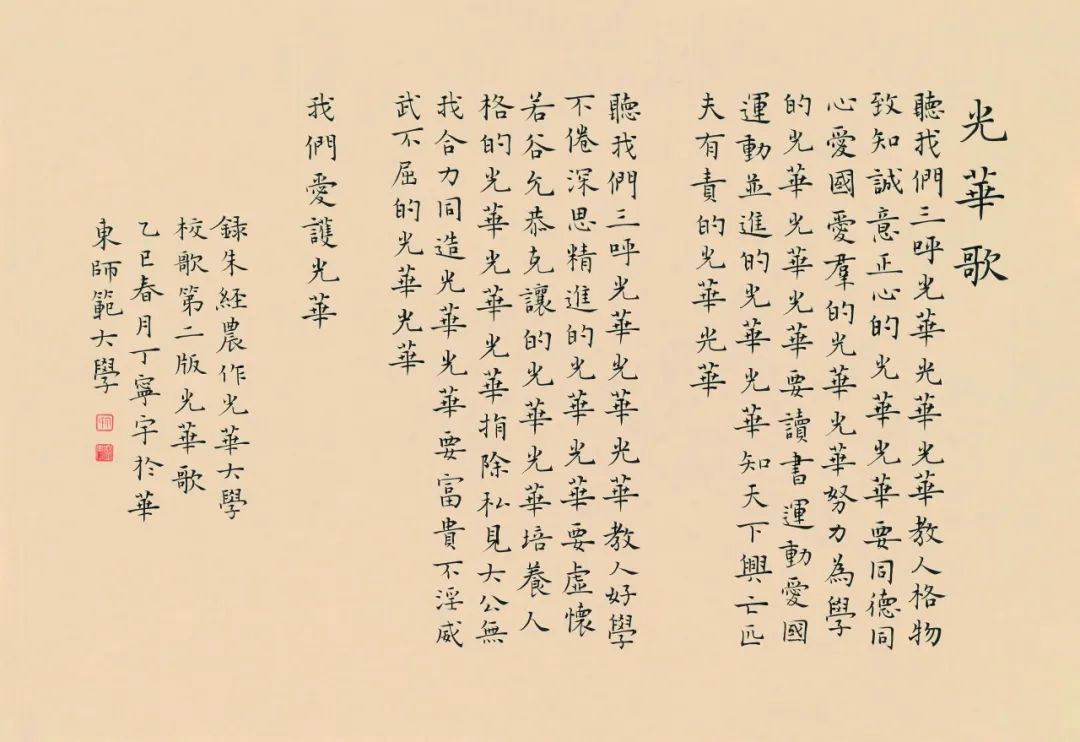 光華歌
聽我們三呼光華光華光華教人格物
致知誠意正心的光華光華要同德同
心愛國愛羣的光華光華努力為學
的光華光華光華要讀書運動愛國
運動並進的光華光華知天下興亡匹
夫有責的光華光華
聽我們三呼光華光華光華教人好學
不倦深思精進的光華光華要虛懷
若谷允恭克讓的光華光華培養人
格的光華光華光華捐除私見大公無
我合力同造光華光華要富貴不淫威
武不屈的光華光華
我們愛護光華
錄朱經農作光華大學
校歌第二版光華歌
乙巳春月丁寧宇於華
東師範大學